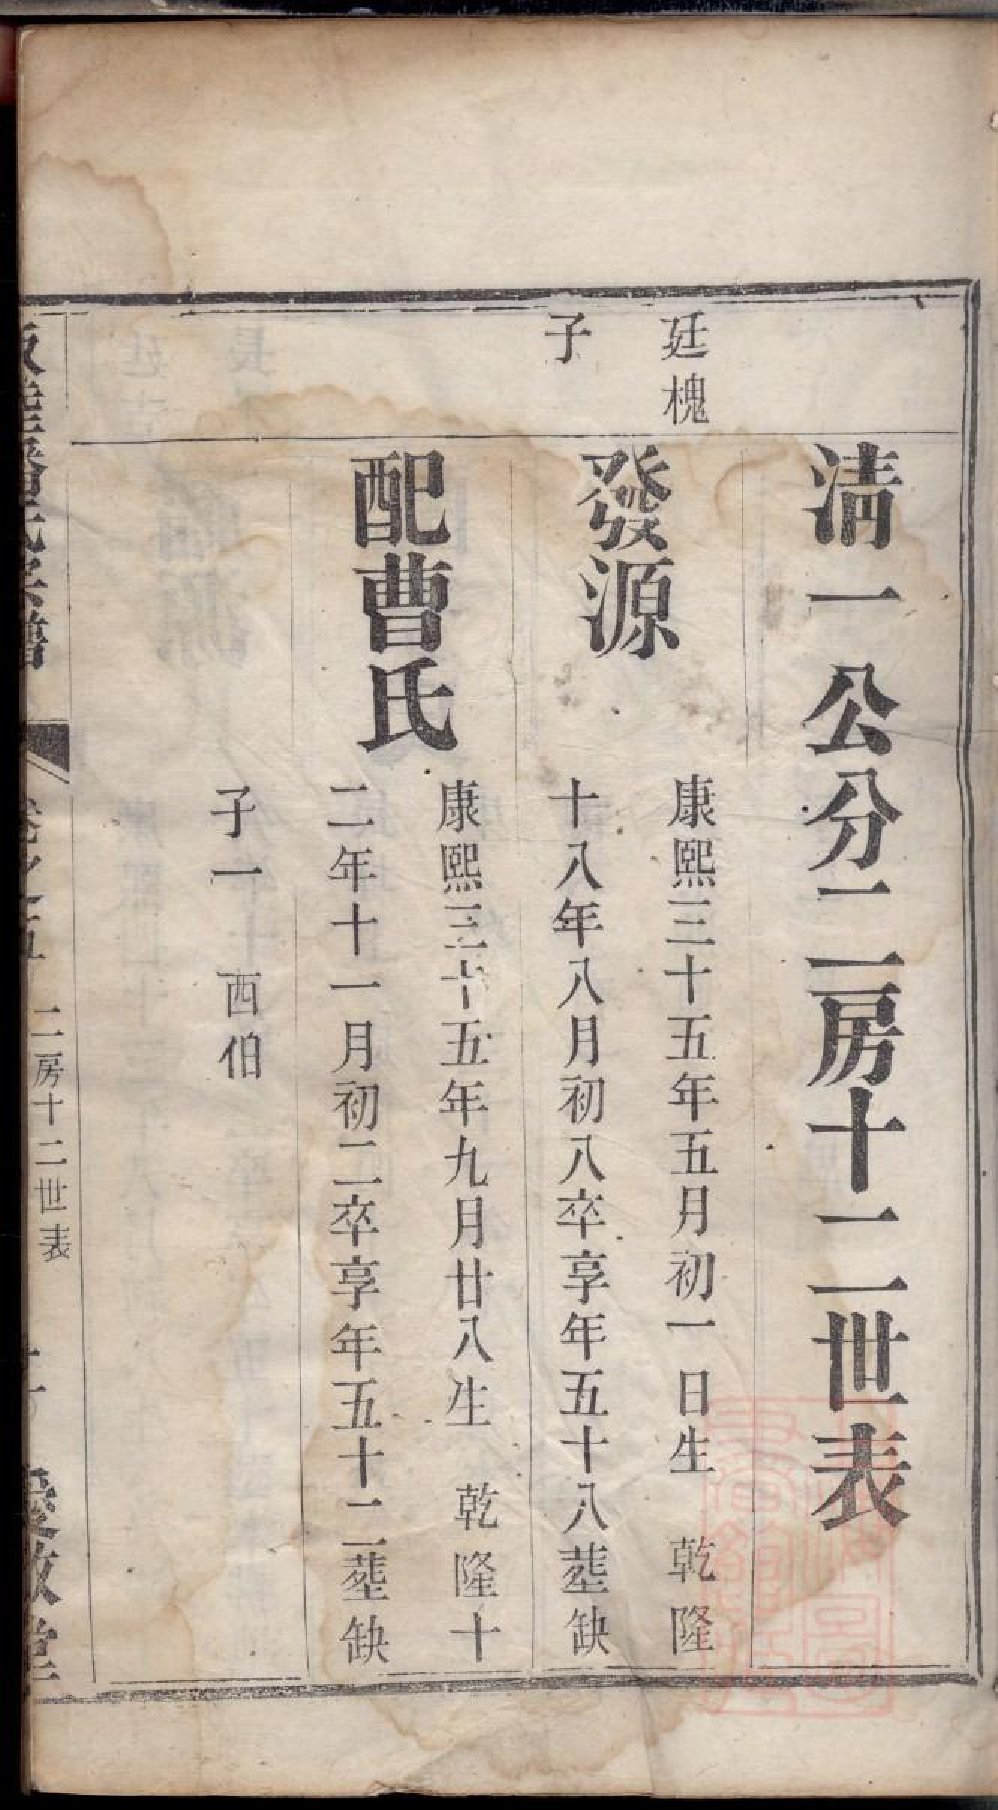 清一公分二房十二世表
廷槐
子
發源
康熙三十五年五月初一日生 乾隆
十八年八月初八卒享年五十八塟缺
配曹氏
康熙三十五年九月廿八生 乾隆十
二年十一月初二卒享年五十二塟缺
子一 西伯
卷之五 二房十二世表